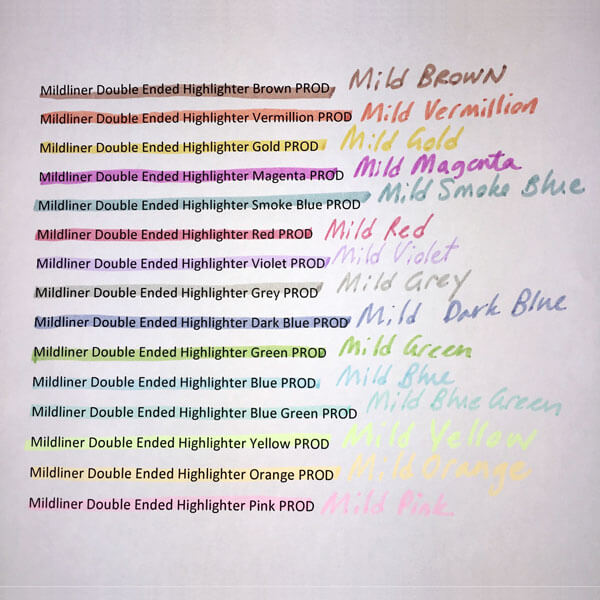 Mildliner Double Ended Highlighter Brown PROD Mild BROWN
Mildliner Double Ended Highlighter Vermillion PROD Mild Vermillion
Mildliner Double Ended Highlighter Gold PROD Mild Gold
Mildliner Double Ended Highlighter Magenta PROD Mild Magenta
Mildliner Double Ended Highlighter Smoke Blue PROD Mild Smoke Blue
Mildliner Double Ended Highlighter Red PROD Mild Red
Mildliner Double Ended Highlighter Violet PROD Mild Violet
Mildliner Double Ended Highlighter Grey PROD Mild Grey
Mildliner Double Ended Highlighter Dark Blue PROD Mild Dark Blue
Mildliner Double Ended Highlighter Green PROD Mild Green
Mildliner Double Ended Highlighter Blue PROD Mild Blue
Mildliner Double Ended Highlighter Blue Green PROD Mild Blue Green
Mildliner Double Ended Highlighter Yellow PROD Mild Yellow
Mildliner Double Ended Highlighter Orange PROD Mild Orange
Mildliner Double Ended Highlighter Pink PROD Mild Pink